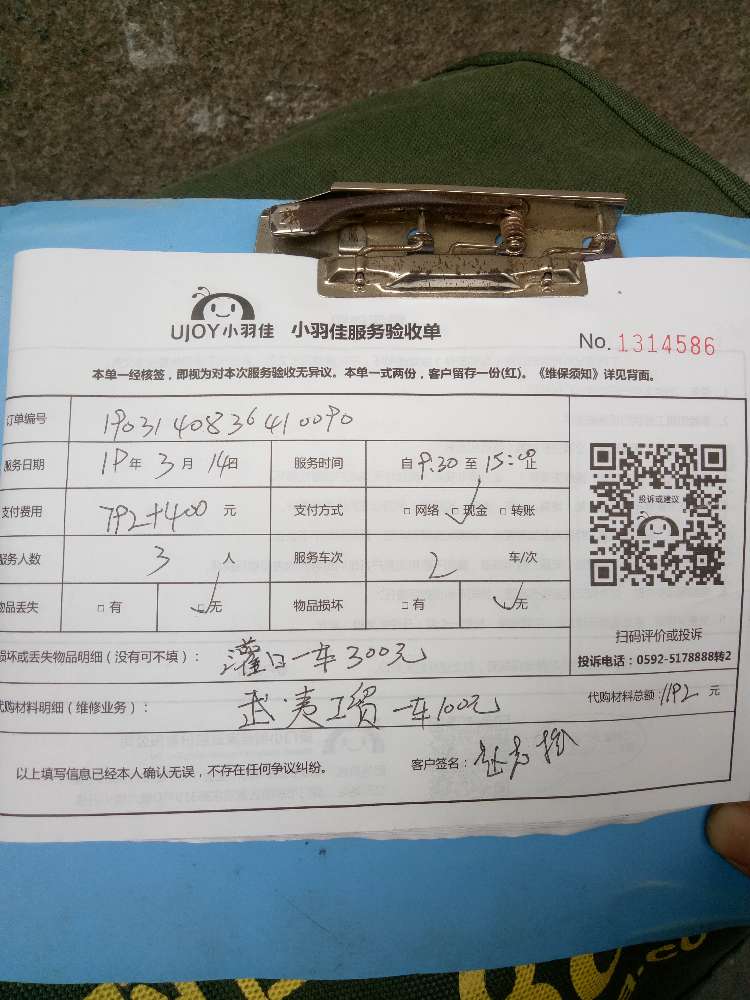 UJOY小羽佳 小羽佳服务验收单
No. 1314586
本单一经核签，即视为对本次服务验收无异议。本单一式两份，客户留存一份(红)。《维保须知》详见背面。
订单编号 190314083641 0090
服务日期 19年 3月 14日 服务时间 自 9:30 至 15:00止
投诉或建议
支付费用 792+400 元 支付方式 □ 网络 □ 现金 □ 转账
服务人数 3 人 服务车次 2 车/次
物品丢失 □ 有 □ 无 物品损坏 □ 有 □ 无
扫码评价或投诉
投诉电话：0592-5178888转2
损坏或丢失物品明细（没有可不填）： 灌口一车300元
代购材料明细（维修业务）： 武夷工贸一车100元
代购材料总额：1192 元
以上填写信息已经本人确认无误，不存在任何争议纠纷。
客户签名：